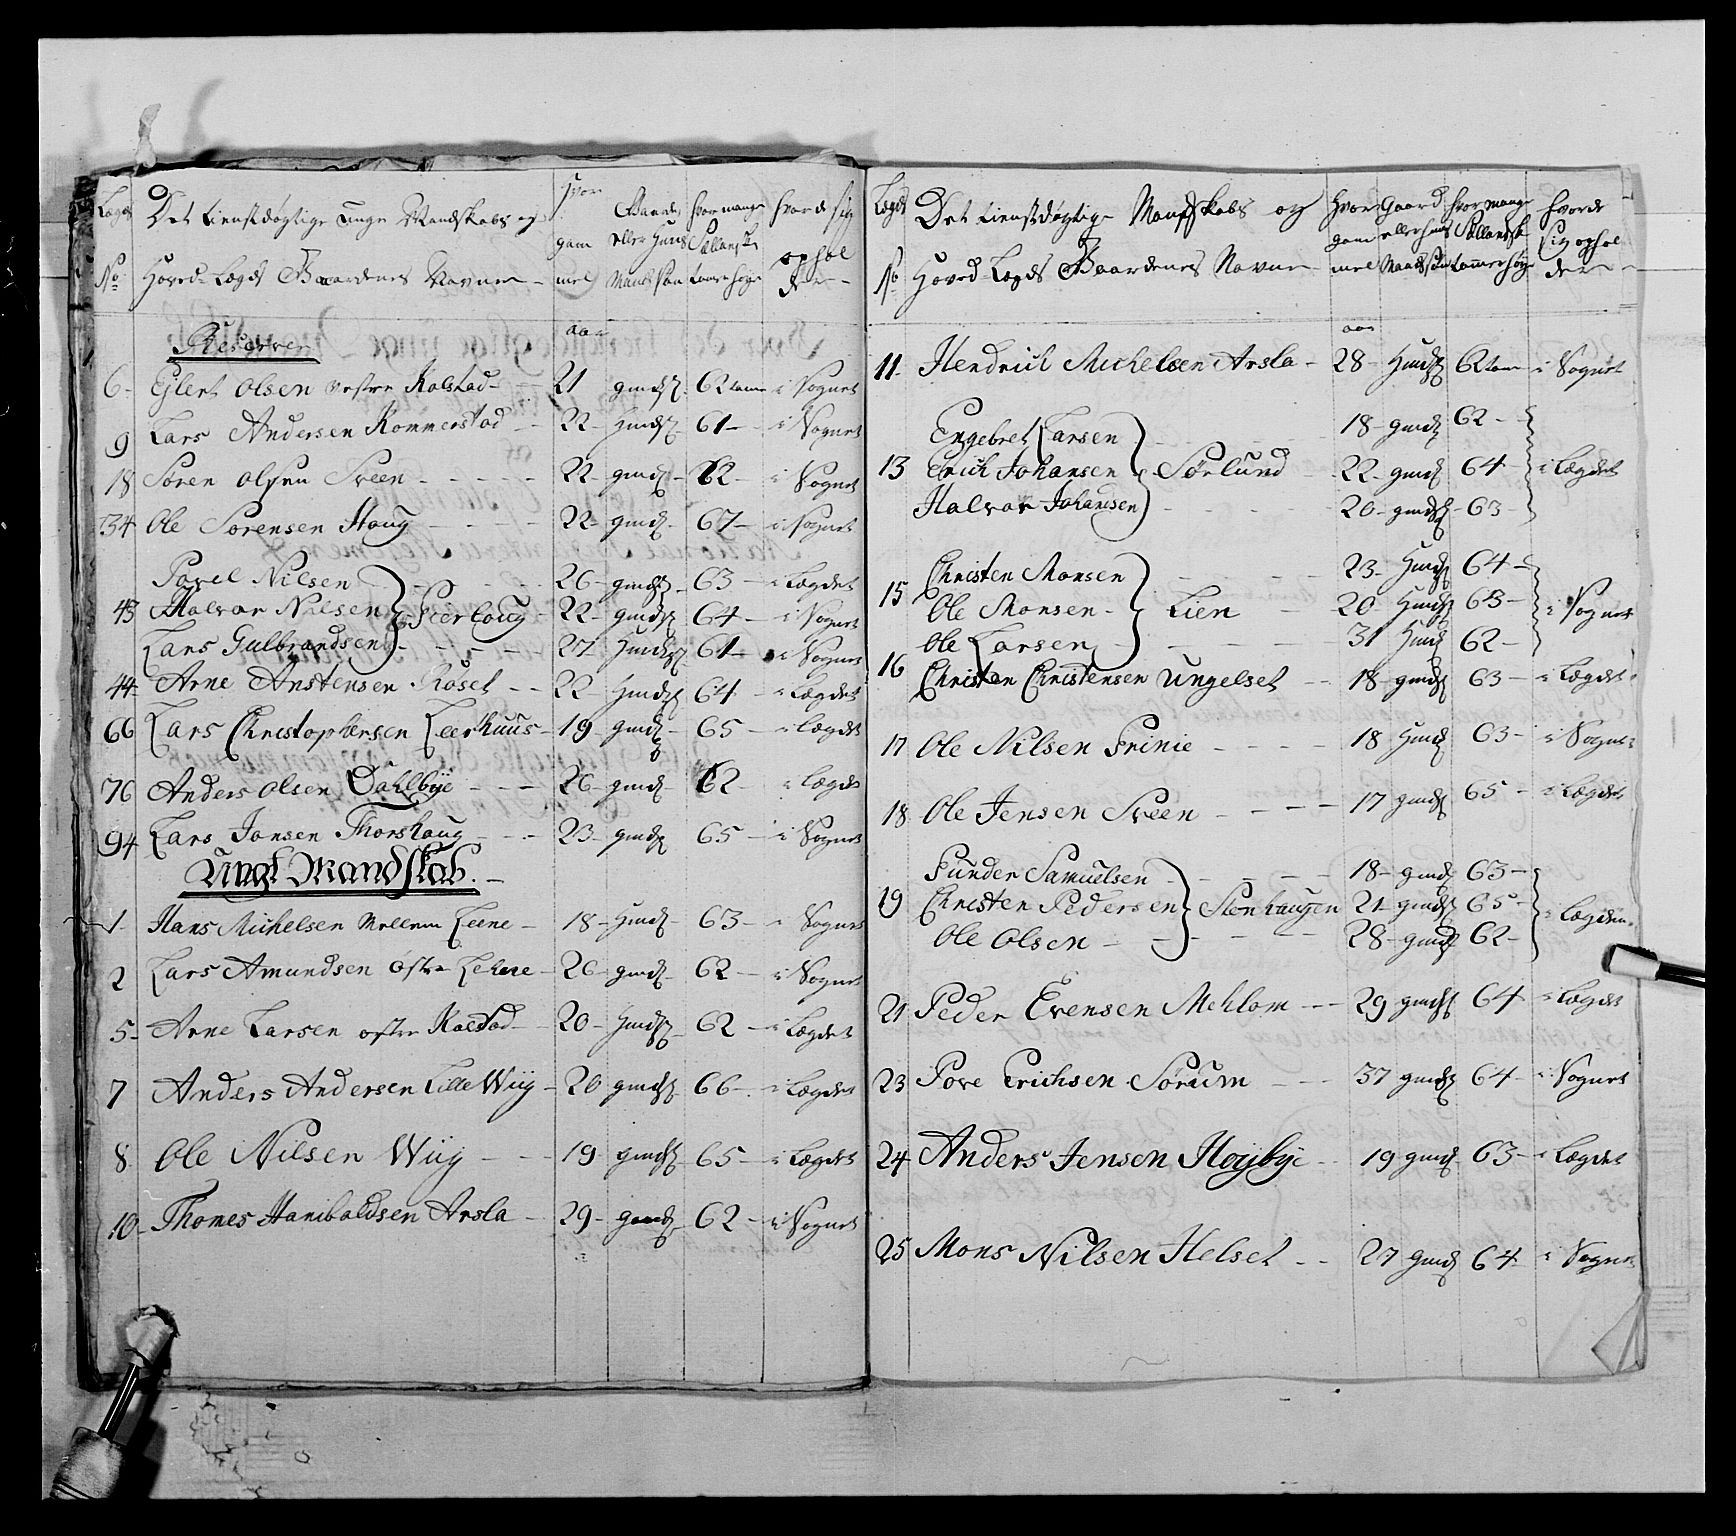 Lægds No Det tienstdøgtige unge Mandskabs og Hoved-Lægds Gaardenes Navne - Hvor gammel Gaards eller Huus Mands søn hvor mange Siællandske tomme høye hvor de sig opholder -
Reserven
aar
6- Eylert Olsen vestre Kolstad - 21 gmds 62 tom i Sognet
9 Lars Andersen Kommerstad - 22- Hmds 61- i Sognet
18 Søren Olsen Sveen - - - - 22- gmds- 62- i Sognet
34 Ole Sørensen Haug - - - 22- gmds- 67- i Sognet
Povel Nilsen - - - 26- gmds- 63- i Lægdet
43 Halvor Nilsen Peerloug - 22- gmds 64- i Sognet
Lars Gulbrandsen - - - 27 Hmds 61- i Sognet
44- Arne Anstensen Røset - - 22- Hmds 64- i Lægdet
66 Lars Christophersen Leerhuus- 19 gmds 65- i Lægdet
76 Anders Olsen Dahlbÿe - - - 26- gmds 62 i Lægdet
94 Lars Jonsen Thorshaug - - - 23- gmds 65- i Sognet
Ungt Mandskab. -
1. Hans Michelsen Mellem Leene - 18- Hmds- 63- i Sognet
2 Lars Amundsen østre Lehne - 26- gmds- 62- i Sognet
5- Arne Larsen østre Kolstad - 20- Hmds 62- i Lægdet
7 Anders Andersen Lille Wiig - 20 gmds 66- i Lægdet
8 Ole Nilsen Wiig - - - 19- gmds 65- i Lægdet
10- Thomes Haniboldsen Arsla - 29- gmds- 62- i Sognet
Lægds No Det tienstdøgtige Mandskabs og Hoved Lægds Gaardenes Navne Hvor gammel Gaard eller Huus Mands søn hvor mange Siællandske tommer høye hvor de sig opholder -
aar
11- Hendrich Michelsen Arsla - 28- Hmds 62 tom i Sognet
Engebret Larsen - - - 18- gmds 62-
13 Erich Johansen Sørlund 22- gmds 64- i Lægdet
Halvor Johansen - - - 20- gmds 63-
Christen Monsen - - - 23- Hmds 64-
15 Ole Monsen- Lien - 20 Hmds 63- i Sognet
Ole Larsen - - - 31 Hmds 62-
16 Christen Christensen Ungelset - - 18- gmds 63- i Lægdet
17 Ole Nilsen Frinie - - - - 18 Hmds 63- i Sognet
18 Ole Jensen Sveen - - - 17 gmds 65- i Lægdet
Funder Samuelsen - - - 18- gmds 63-
19 Christen Pedersen Stenhaugen 21- gmds 65- i Lægdet
Ole Olsen - - - 28- gmds 62-
21 Peder Evensen Mehlom - - - 29 gmds 64- i Lægdet
23 Pove Erichsen Sørum - - - 37 gmds 64- i Sognet
24 Anders Jensen Høybye - 19 gmds 63- i Lægdet
25 Mons Nilsen Helset - - 27 gmds 64- i Sognet